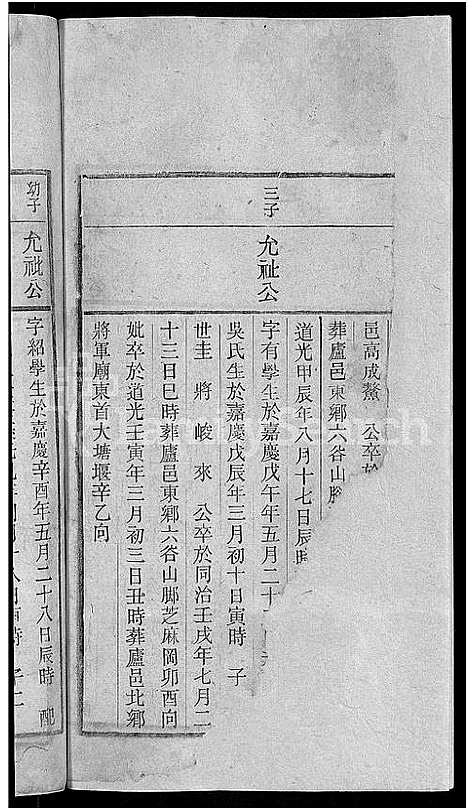 邑高成鰲　公卒於
葬廬邑東鄉六谷山腳
道光甲辰年八月十七日辰時
三子　允祉公
字有學生於嘉慶戊午年五月二十
吳氏生於嘉慶戊辰年三月初十日寅時　子
世圭　將　峻　來　公卒於同治壬戌年七月二
十三日巳時葬廬邑東鄉六谷山腳芝麻岡卯酉向
妣卒於道光壬寅年三月初三日丑時葬廬邑北鄉
將軍廟東首大塘堰辛乙向
幼子　允祉公
字紹學生於嘉慶辛酉年五月二十八日辰時　配